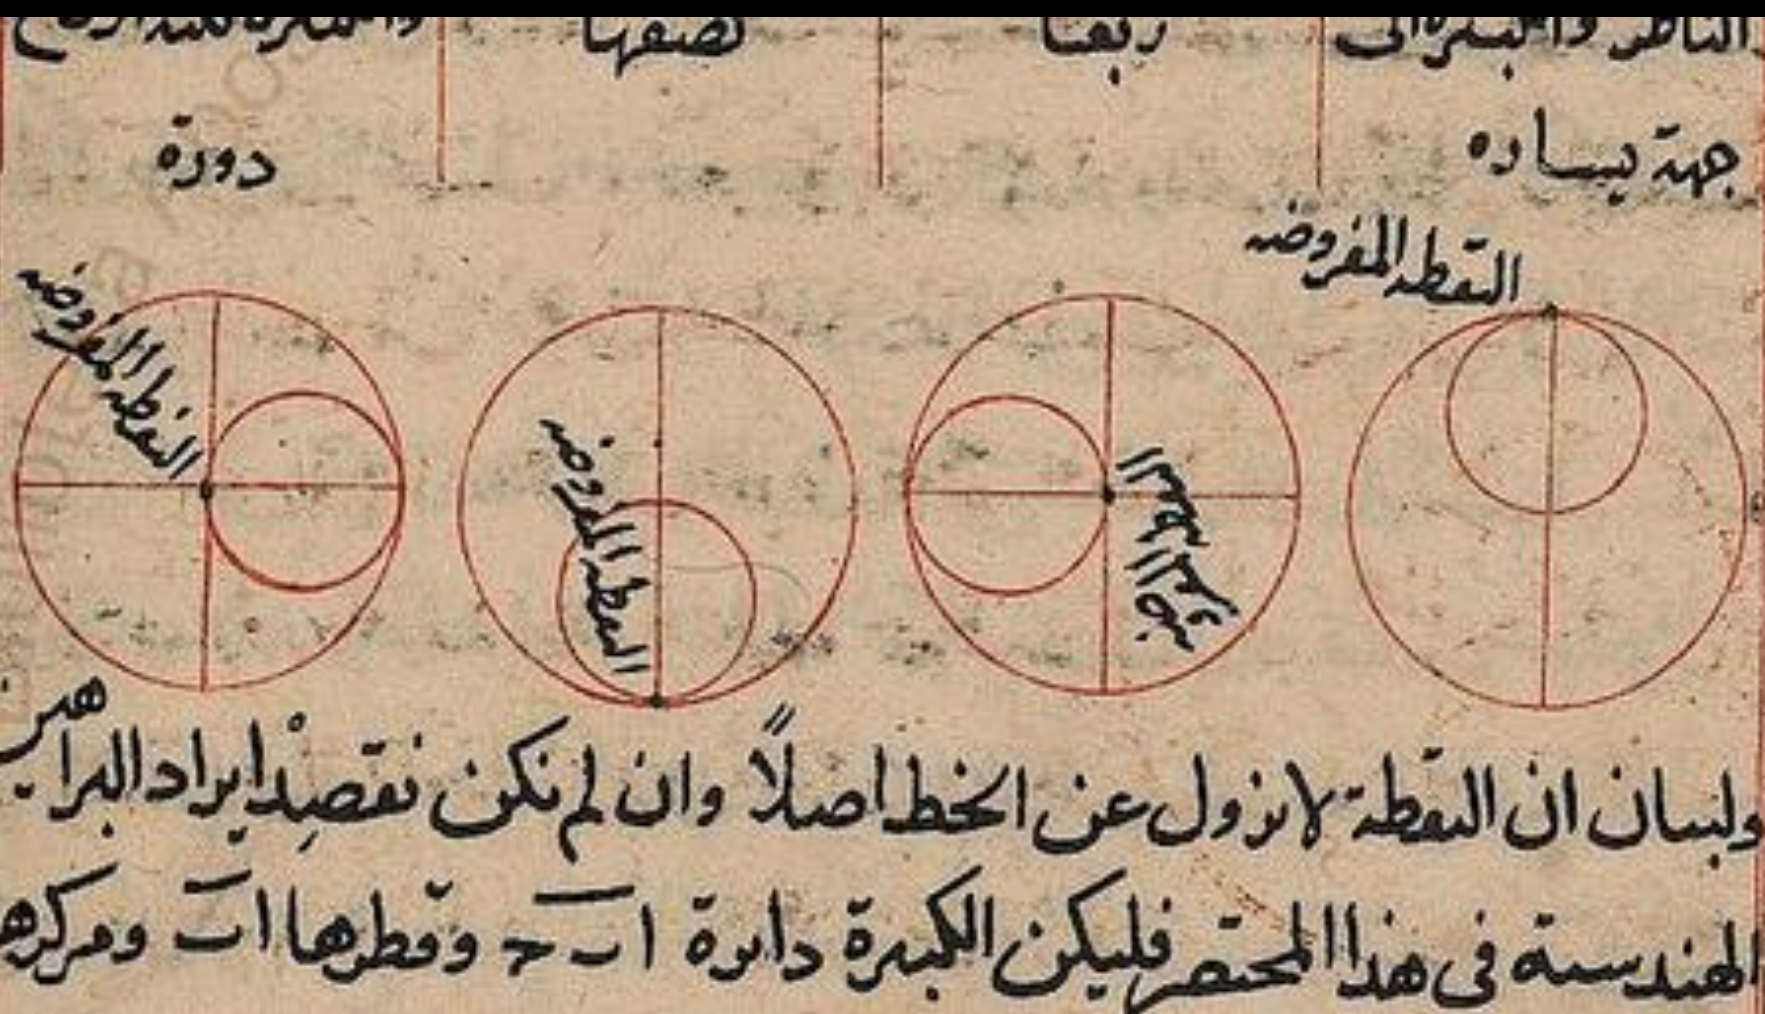 الناظر والكبيرة الى
جهة يساره
ربعها
نصفها
دورة
النقطة المفروضة
النقطة المفروضه
النقطة المفروضه
النقطة المفروضه
ولبيان ان النقطة لا تزول عن الخط اصلاً وان لم نكن نقصِدْ ايراد البراهين
الهندسية فى هذا المختصر فليكن الكبيرة دايرة اب ح وقطرها اب ومركزها